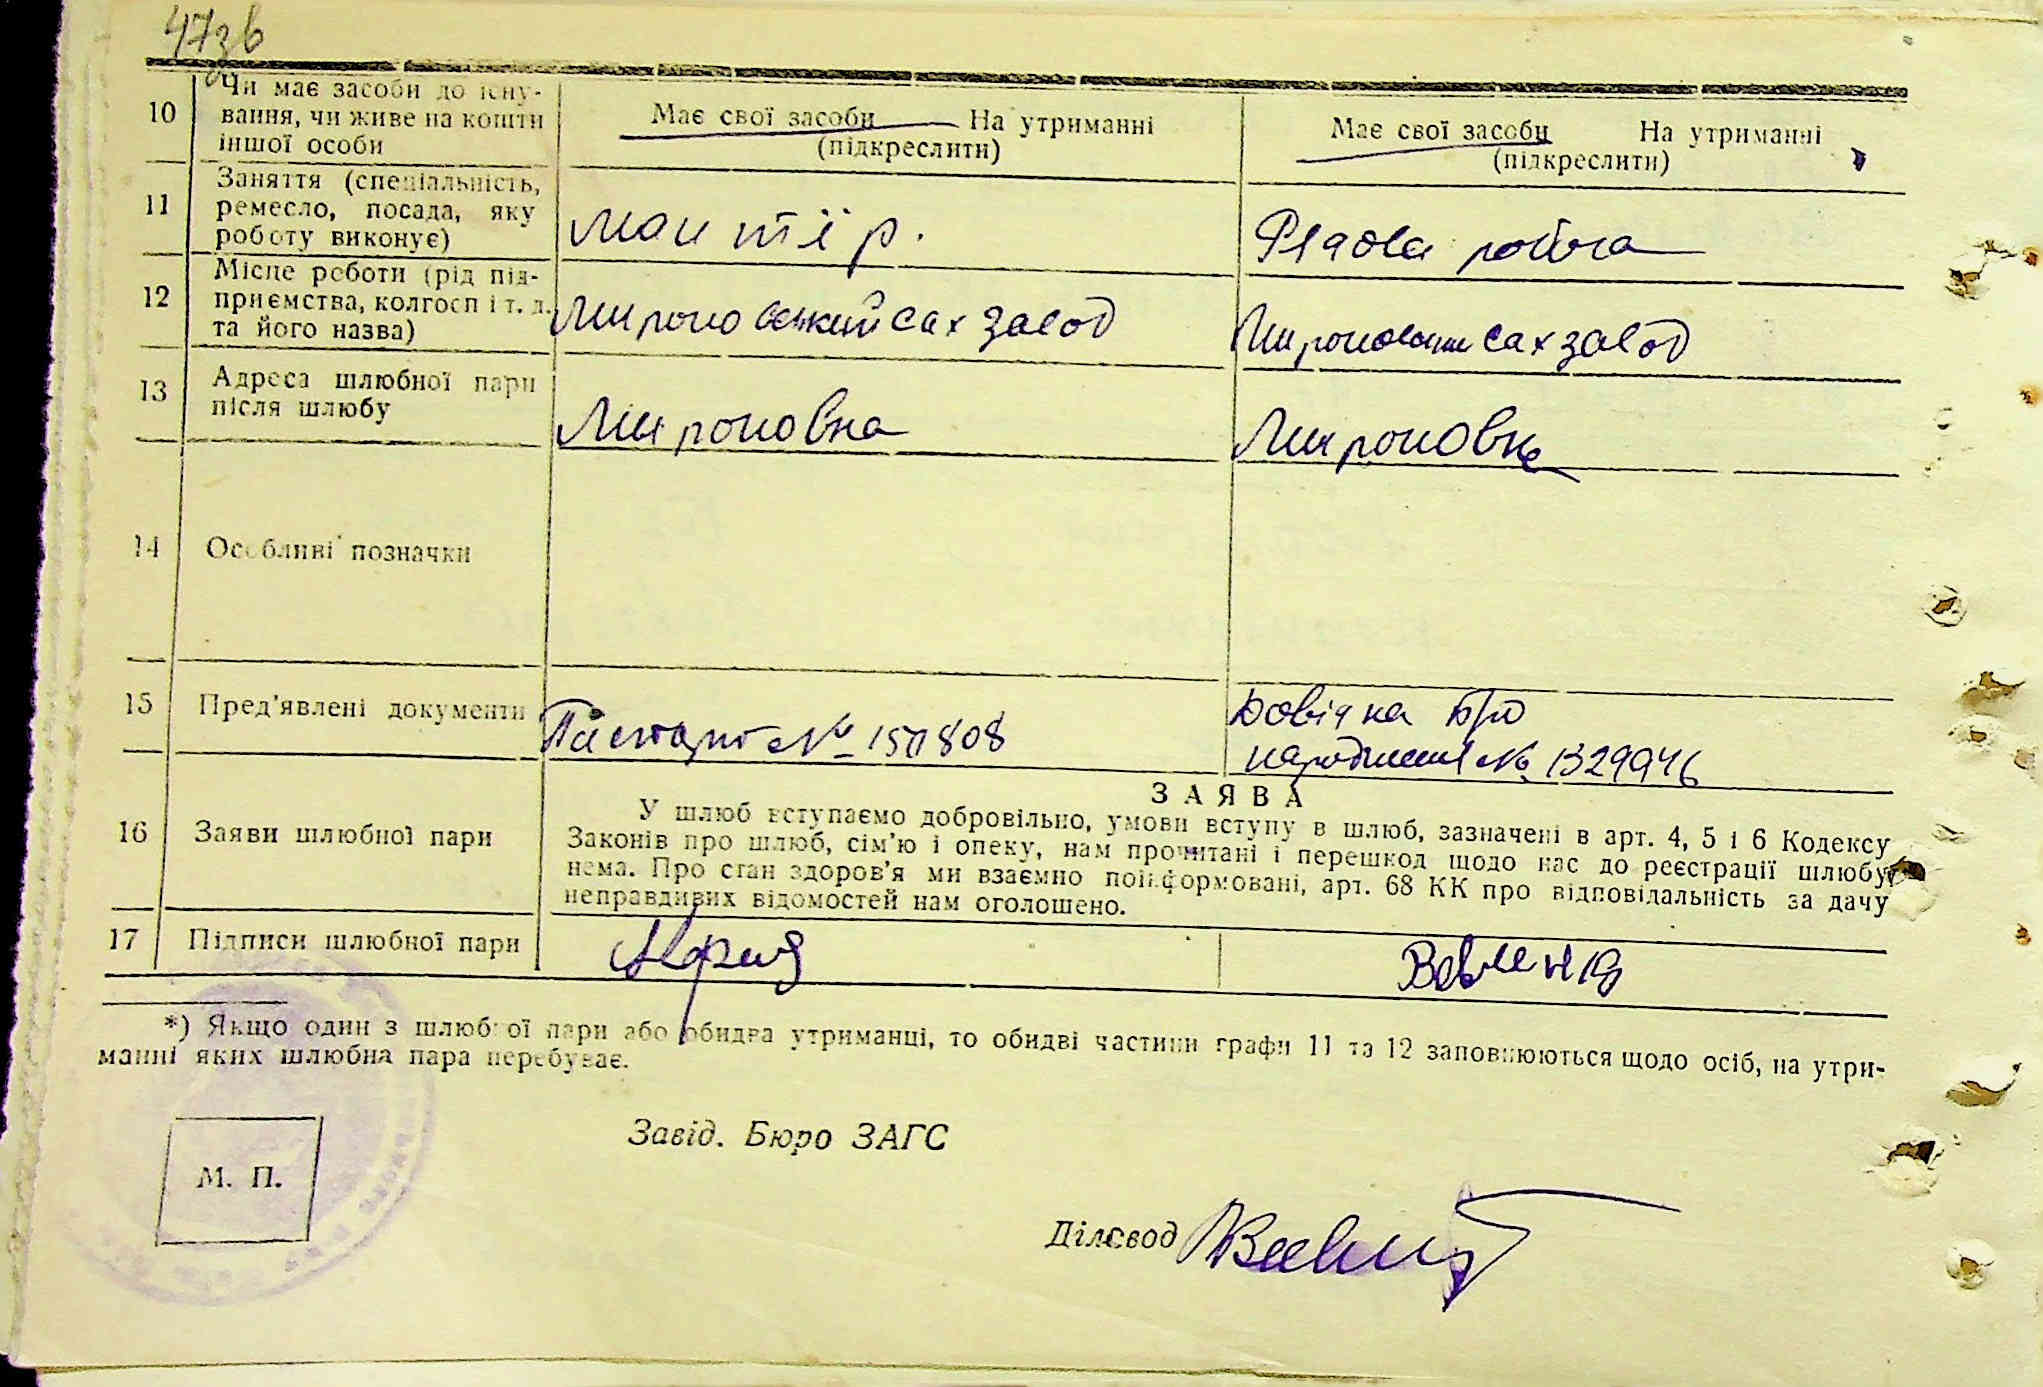 47зв
10 Чи має засоби до існу-
вання, чи живе на кошти
іншої особи
Має свої засоби На утриманні
(підкреслити)
Має свої засоби На утриманні
(підкреслити)
11 Заняття (спеціальність,
ремесло, посада, яку
роботу виконує)
Монтїр.
Рядова робоча
12 Місце роботи (рід під-
приємства, колгосп і т. д.
та його назва)
Мироновський сахзавод
Мироновський сахзавод
13 Адреса шлюбної пари
після шлюбу
Мироновка
Мироновка
14 Особливі позначки
15 Пред'явлені документи
Паспорт №
Довідка про
народження № 1329946
16 Заяви шлюбної пари
ЗАЯВА
У шлюб вступаємо добровільно, умови вступу в шлюб, зазначені в арт. 4, 5 і 6 Кодексу
Законів про шлюб, сім'ю і опеку, нам прочитані і перешкод щодо нас до реєстрації шлюбу
нема. Про стан здоров'я ми взаємно поінформовані, арт. 68 КК про відповідальність за дачу
неправдивих відомостей нам оголошено.
17 Підписи шлюбної пари
*) Якщо один з шлюбної пари або обидва утриманці, то обидві частини графи 11 та 12 заповнюються щодо осіб, на утри-
манні яких шлюбна пара перебуває.
Завід. Бюро ЗАГС
М. П.
Діловод